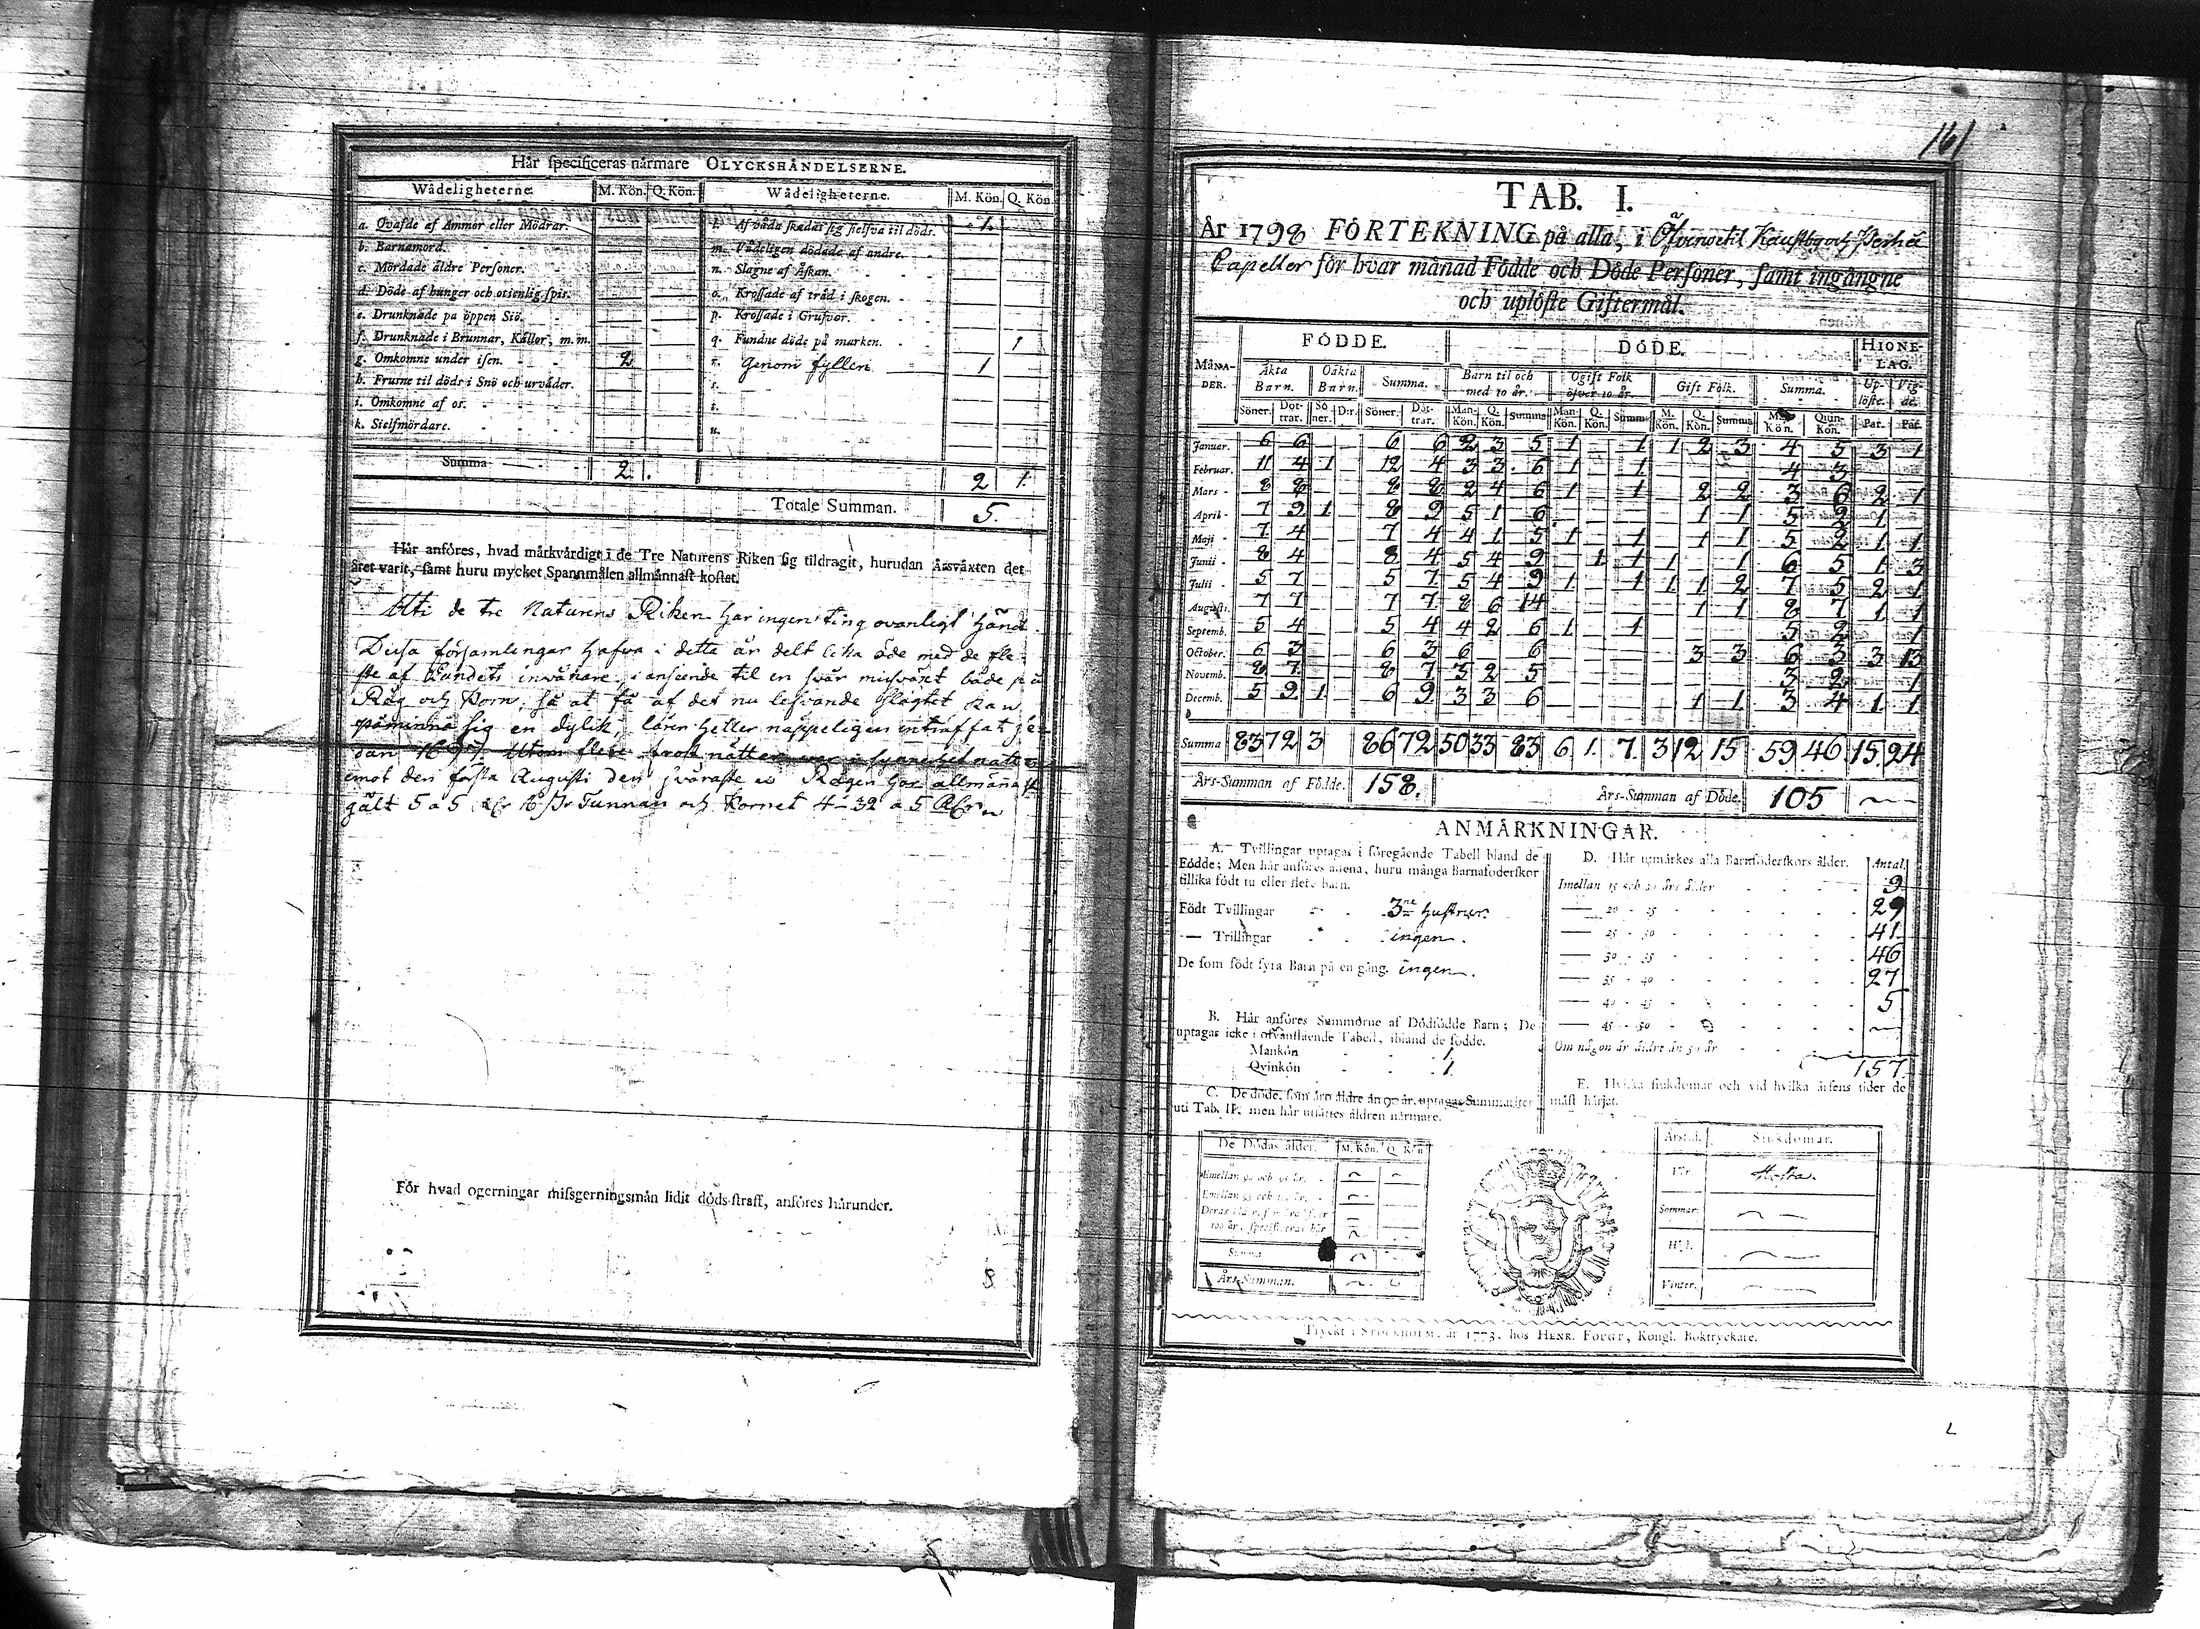 Hår specificeras nårmare OLYCKSHÅNDELSERNE.
Wådeligheterne. M. Kön. Q. Kön. Wådeligheterne. M. Kön. Q. Kön.
a. Qvafde af Ammor eller Mödrar. l. Af våda skadat sig sielfva til döds. 1.
b. Barnamord. m. Vådeligen dödade af andre.
c. Mördade åldre Personer. n. Slagne af Åskan.
d. Döde af hunger och otienlig spis. o. Krossade af tråd i skogen.
e. Drunknade på öppen Siö. p. Krossade i Grufvor.
f. Drunknade i Brunnar, Kållor, m. m. q. Fundne döde på marken. 1
g. Omkomne under isen. 2 r. Genom fylleri 1
h. Frusne til döds i Snö och urvåder. s.
i. Omkomne af os. t.
k. Sielfmördare. u.
Summa 2. 2 1.
Totale Summan. 5.
Hår anföres, hvad mårkvårdigt i de Tre Naturens Riken sig tildragit, hurudan Årsvåxten det
året varit, samt huru mycket Spannmålen allmånnast kostat.
Uti de tre Naturens Riken har ingen ting ovanligt händt
Dessa församlingar hafva i detta år delt lika öde med de fle-
ste af Landets invånare, i anseende til en svår missväxt både på
Råg och Korn, så at få af det nu lefvande slägtet kan
påminna sig en dylik, lärer heller näppeligen inträffat se-
dan 1697. Utom flere frost nätter var i synnerhet natten
emot den första Augusti den svåraste. Rågen har allmännast
gält 5 a 5 Rdr 16 s Tunnan och Kornet 4-32 a 5 Rdr
För hvad ogerningar missgerningsmån lidit döds-straff, anföres hårunder.
8
161
TAB. I.
År 1798 FÖRTEKNING på alla, i Öfvervetil Kaustby och Perho
Capeller för hvar månad Födde och Döde Personer, samt ingångne
och uplöste Giftermål.
MÅNA-DER. FÖDDE. DÖDE. HIONE-LAG.
Äkta Barn. Oäkta Barn. Summa. Barn til och med 10 år. Ogift Folk öfver 10 år. Gift Folk. Summa. Up-löste. Vig-de.
Söner. Döt-trar. Sö-ner. D:r. Söner. Döt-trar. Man-Kön. Q. Kön. Summa Man-Kön. Q. Kön. Summa M. Kön. Q. Kön. Summa M. Kön. Qvin-Kön. Par. Par.
Januar. 6 6 6 6 2 3 5 1 1 1 2 3 4 5 3 1
Februar. 11 4 1 12 4 3 3 6 1 1 4 3
Mars 8 8 8 8 2 4 6 1 1 2 2 3 6 2 1
April 7 9 1 8 9 5 1 6 1 1 5 2 1
Maji 7 4 7 4 4 1 5 1 1 1 1 5 2 1 1
Junii 8 4 8 4 5 4 9 1 1 1 1 6 5 1 3
Julii 5 7 5 7 5 4 9 1 1 1 1 2 7 5 2 1
Augusti. 7 7 7 7 8 6 14 1 1 8 7 1 1
Septemb. 5 4 5 4 4 2 6 1 1 5 2 1
October. 6 3 6 3 6 6 3 3 6 3 3 13
Novemb. 8 7 8 7 3 2 5 3 2 1
Decemb. 5 9 1 6 9 3 3 6 1 1 3 4 1 1
Summa 83 72 3 86 72 50 33 83 6 1. 7. 3 12 15 59 46 15. 24
Års-Summan af Födde. 158. Års-Summan af Döde. 105
ANMÅRKNINGAR.
A. Tvillingar uptagas i föregående Tabell bland de
Födde; Men hår anföres allena, huru många Barnaföderskor
tillika födt tu eller flere barn.
Födt Tvillingar 3ne hustrur.
— Trillingar ingen.
De som födt fyra Barn på en gång. ingen.
B. Hår anföres Summorne af Dödfödde Barn; De
uptagas icke i ofvanstående Tabell, ibland de födde.
Mankön 1.
Qvinkön 1.
C. De döde, som åro åldre ån 90 år, uptagas Summariter
uti Tab. II. men hår utsåttes åldren nårmare.
De Dödas ålder. M. Kön. Q. Kön
Emellan 90 och 95 år.
Summa
Års-Summan.
D. Hår upmårkes alla Barnföderskors ålder. Antal.
Imellan 15 och 20 års ålder 9
— 20 - 25 29
— 25 - 30 41
— 30 - 35 46
— 35 - 40 27
— 40 - 45 5
— 45 - 50
Om någon år åldre ån 50 år
157.
E. Hvilka siukdomar och vid hvilka årsens tider de
måst hårjat.
Årstid. Siukdomar.
Vår Hosta.
Sommar.
Höst.
Vinter.
Tryckt i STOCKHOLM, år 1773, hos HENR. FOUGT, Kongl. Boktryckare.